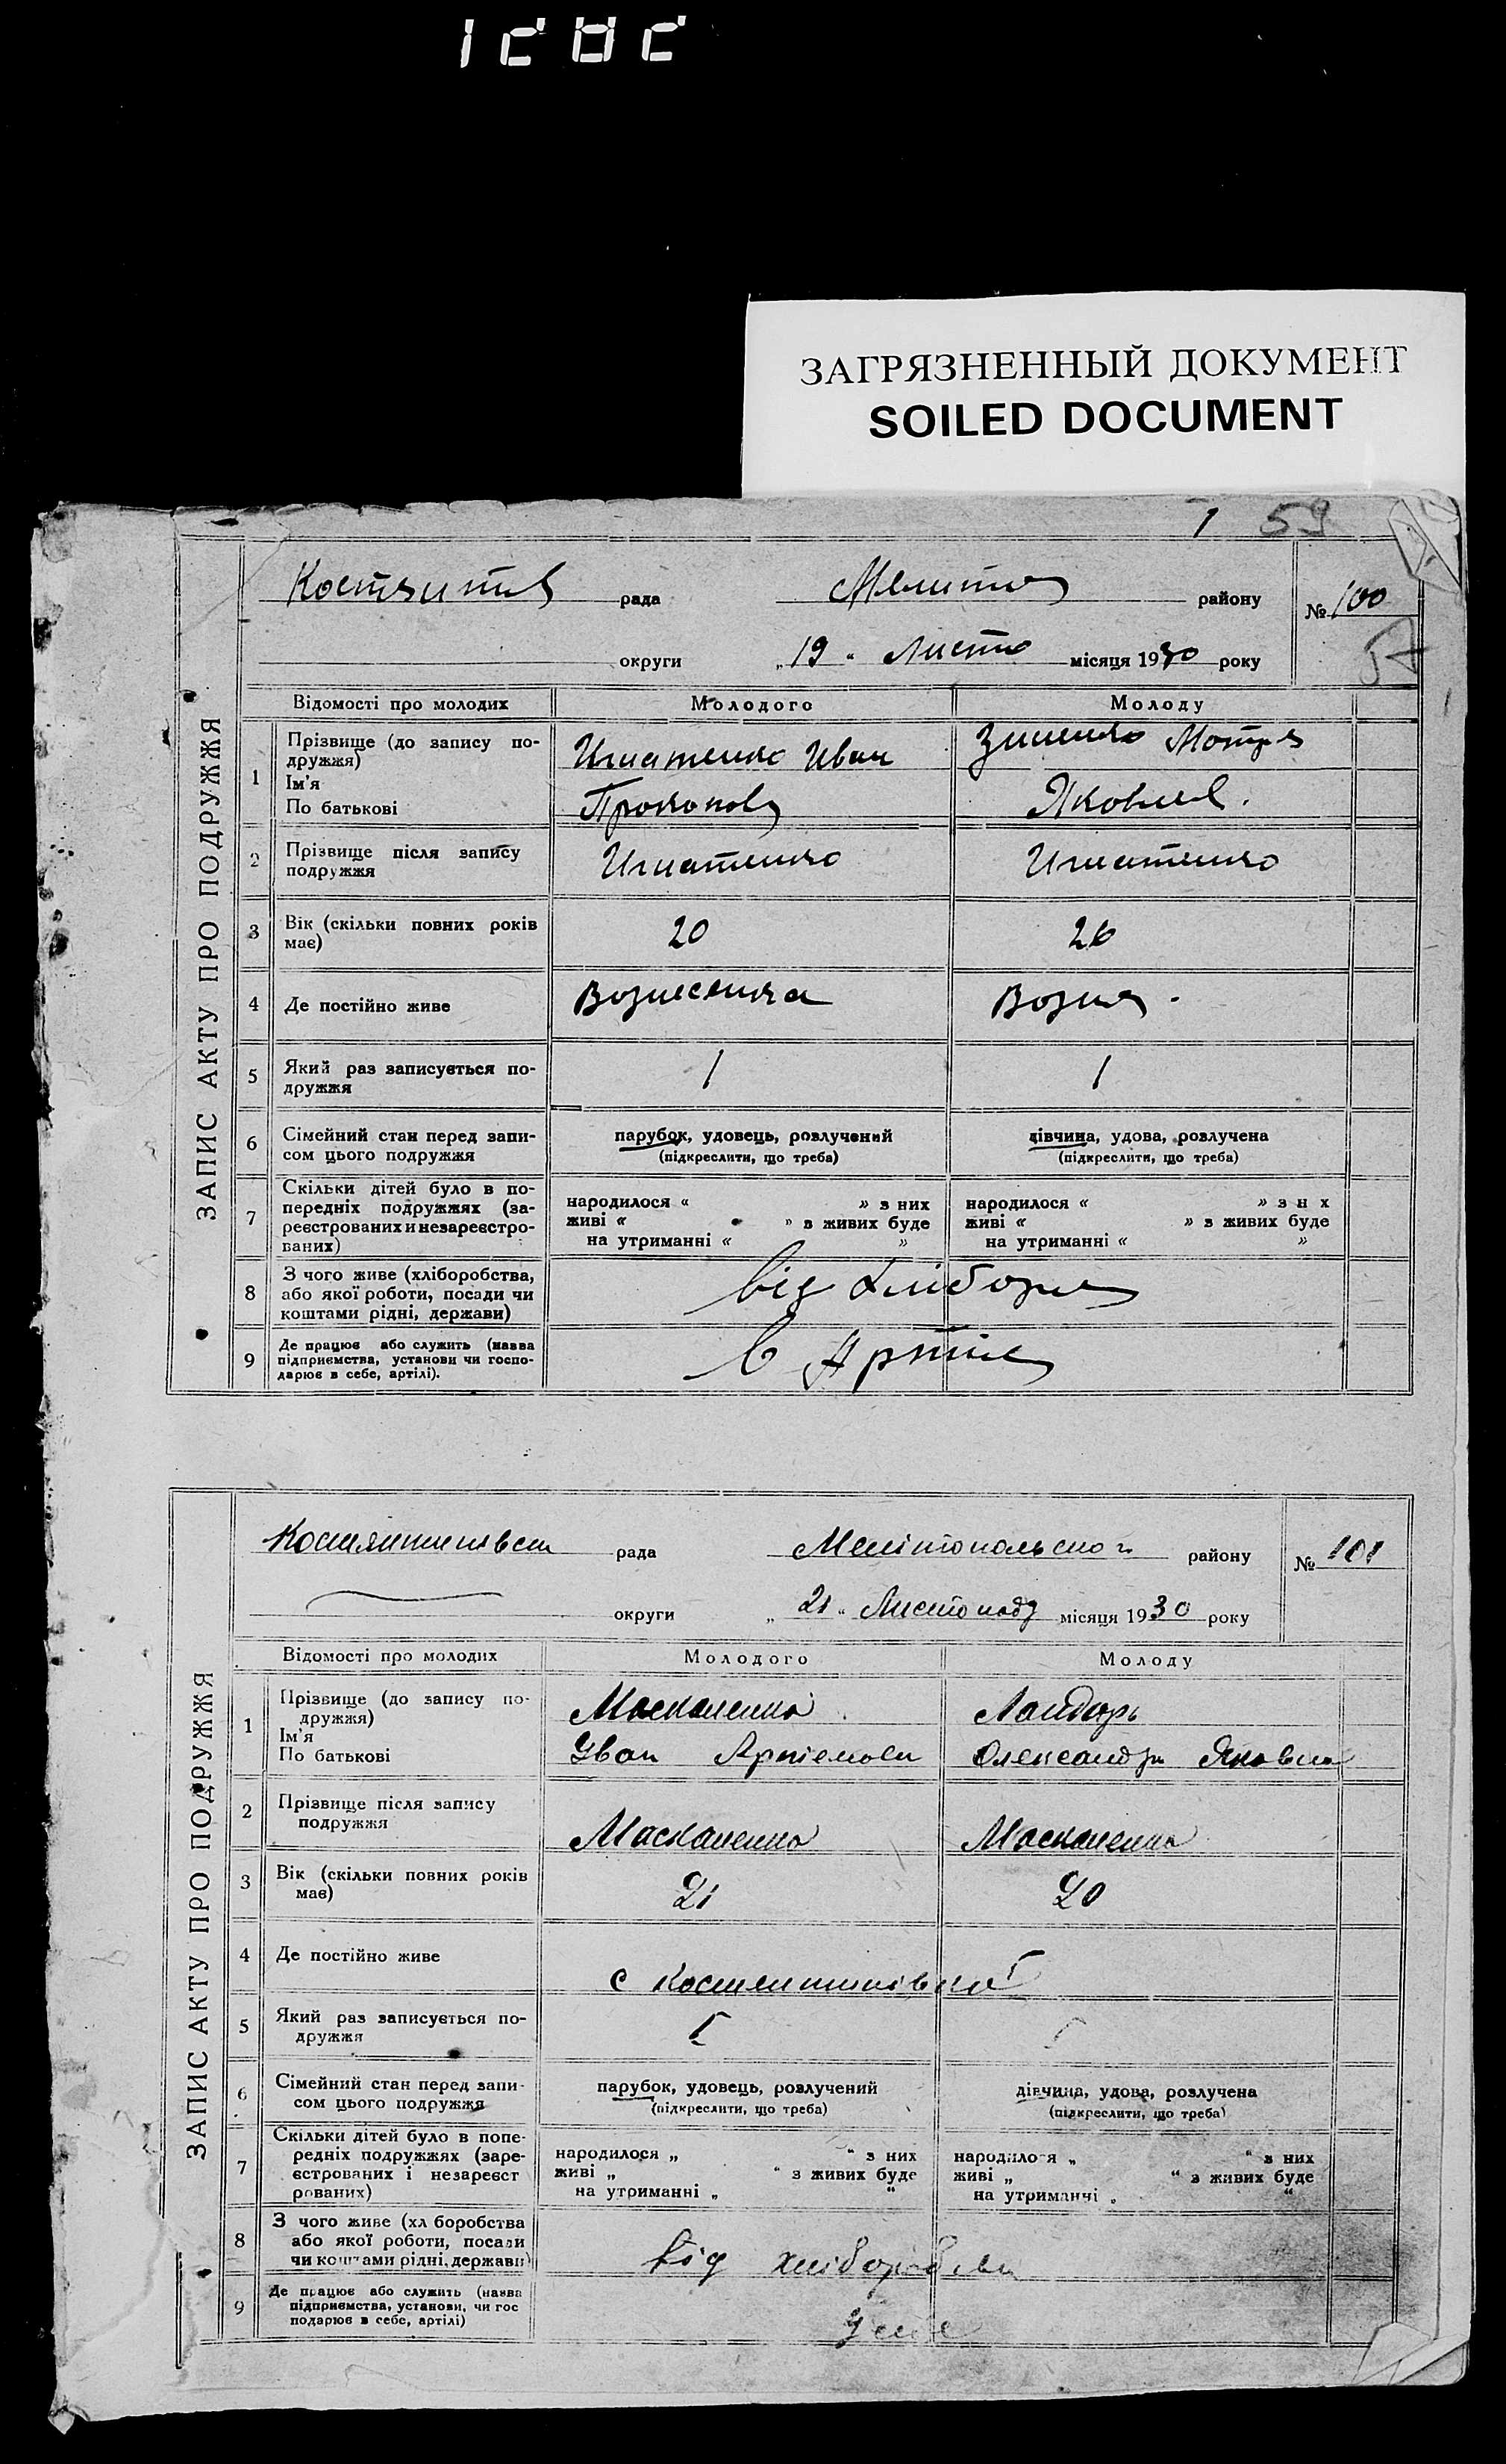 ЗАГРЯЗНЕННЫЙ ДОКУМЕНТ
SOILED DOCUMENT
1 59
ЗАПИС АКТУ ПРО ПОДРУЖЖЯ
рада Мелитоп району № 100
округи „19“ Листо місяця 1930 року
Відомості про молодих Молодого Молоду
1 Прізвище (до запису по-
дружжя)
Ім'я
По батькові
Игнатенко Иван
Прокопов
Зиненко Мотря
Яковлев.
2 Прізвище після запису
подружжя
Игнатенко Игнатенко
3 Вік (скільки повних років
має)
20 26
4 Де постійно живе Вознесенка Возне
5 Який раз записується по-
дружжя
1 1
6 Сімейний стан перед запи-
сом цього подружжя
парубок, удовець, розлучений
(підкреслити, що треба)
дівчина, удова, розлучена
(підкреслити, що треба)
7 Скільки дітей було в по-
передніх подружжях (за-
реєстрованих и незареєстро-
ваних)
народилося « » з них
живі « » з живих буде
на утриманні « »
народилося « » з н х
живі « » з живих буде
на утриманні « »
8 З чого живе (хліборобства,
або якої роботи, посади чи
коштами рідні, держави)
від
9 Де працює або служить (назва
підприємства, установи чи госпо-
дарює в себе, артілі).
в Артіл
ЗАПИС АКТУ ПРО ПОДРУЖЖЯ
Костянтинівська рада Мелітопольського району № 101
округи „21“ Листопад місяця 1930 року
Відомості про молодих Молодого Молоду
1 Прізвище (до запису по-
дружжя)
Ім'я
По батькові
Маскаленко
Іван Артемови
Ландарь
Олександра Яковна
2 Прізвище після запису
подружжя
Маскаленко Маскаленко
3 Вік (скільки повних років
має)
21 20
4 Де постійно живе
с Костянтинівка
5 Який раз записується по-
дружжя
6 Сімейний стан перед запи-
сом цього подружжя
парубок, удовець, розлучений
(підкреслити, що треба)
дівчина, удова, розлучена
(підкреслити, що треба)
7 Скільки дітей було в попе-
редніх подружжях (заре-
єстрованих і незареєст
рованих)
народилося „ “ з них
живі „ “ з живих буде
на утриманні „ “
народилося „ “ з них
живі „ “ з живих буде
на утриманні „ “
8 З чого живе (хл боробства
або якої роботи, посади
чи коштами рідні, держави)
від хліборобства
9 Де працює або служить (назва
підприємства, установи, чи гос
подарює в себе, артілі)